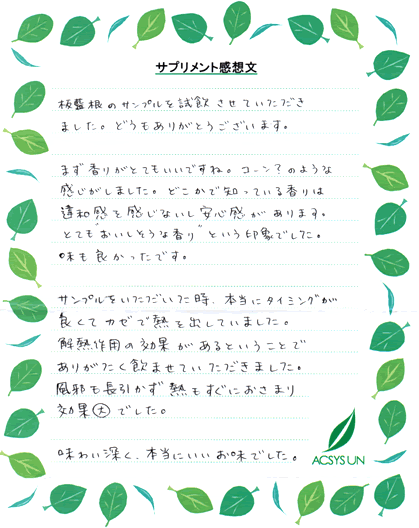 サプリメント感想文
板盤根のサンプルを試飲させていただき
ました。どうもありがとうございます。
まず香りがとてもいいですね。コーン?のような
感じがしました。どこかで知っている香りは
違和感を感じないし安心感があります。
とてもおいしそうな香り〃という印象でした。
味も良かったです。
サンプルをいただいた時、本当にタイミングが
良くてカゼで熱を出していました。
解熱作用の効果があるということで
ありがたく飲ませていただきました。
風邪も長引かず熱もすぐにおさまり
効果大でした。
味わい深く、本当にいいお味でした。
ACSYS UN